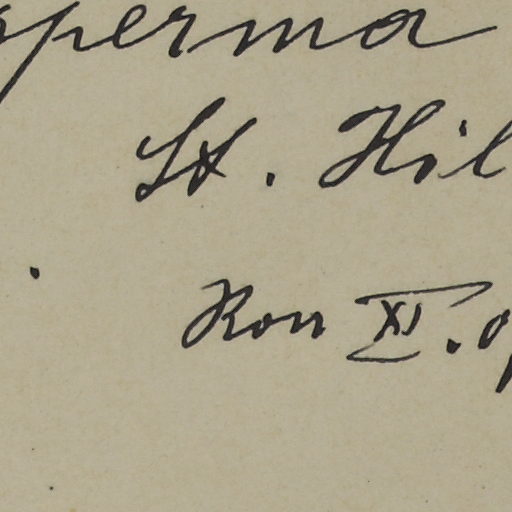 sperma
St. Hil
Kon XI.